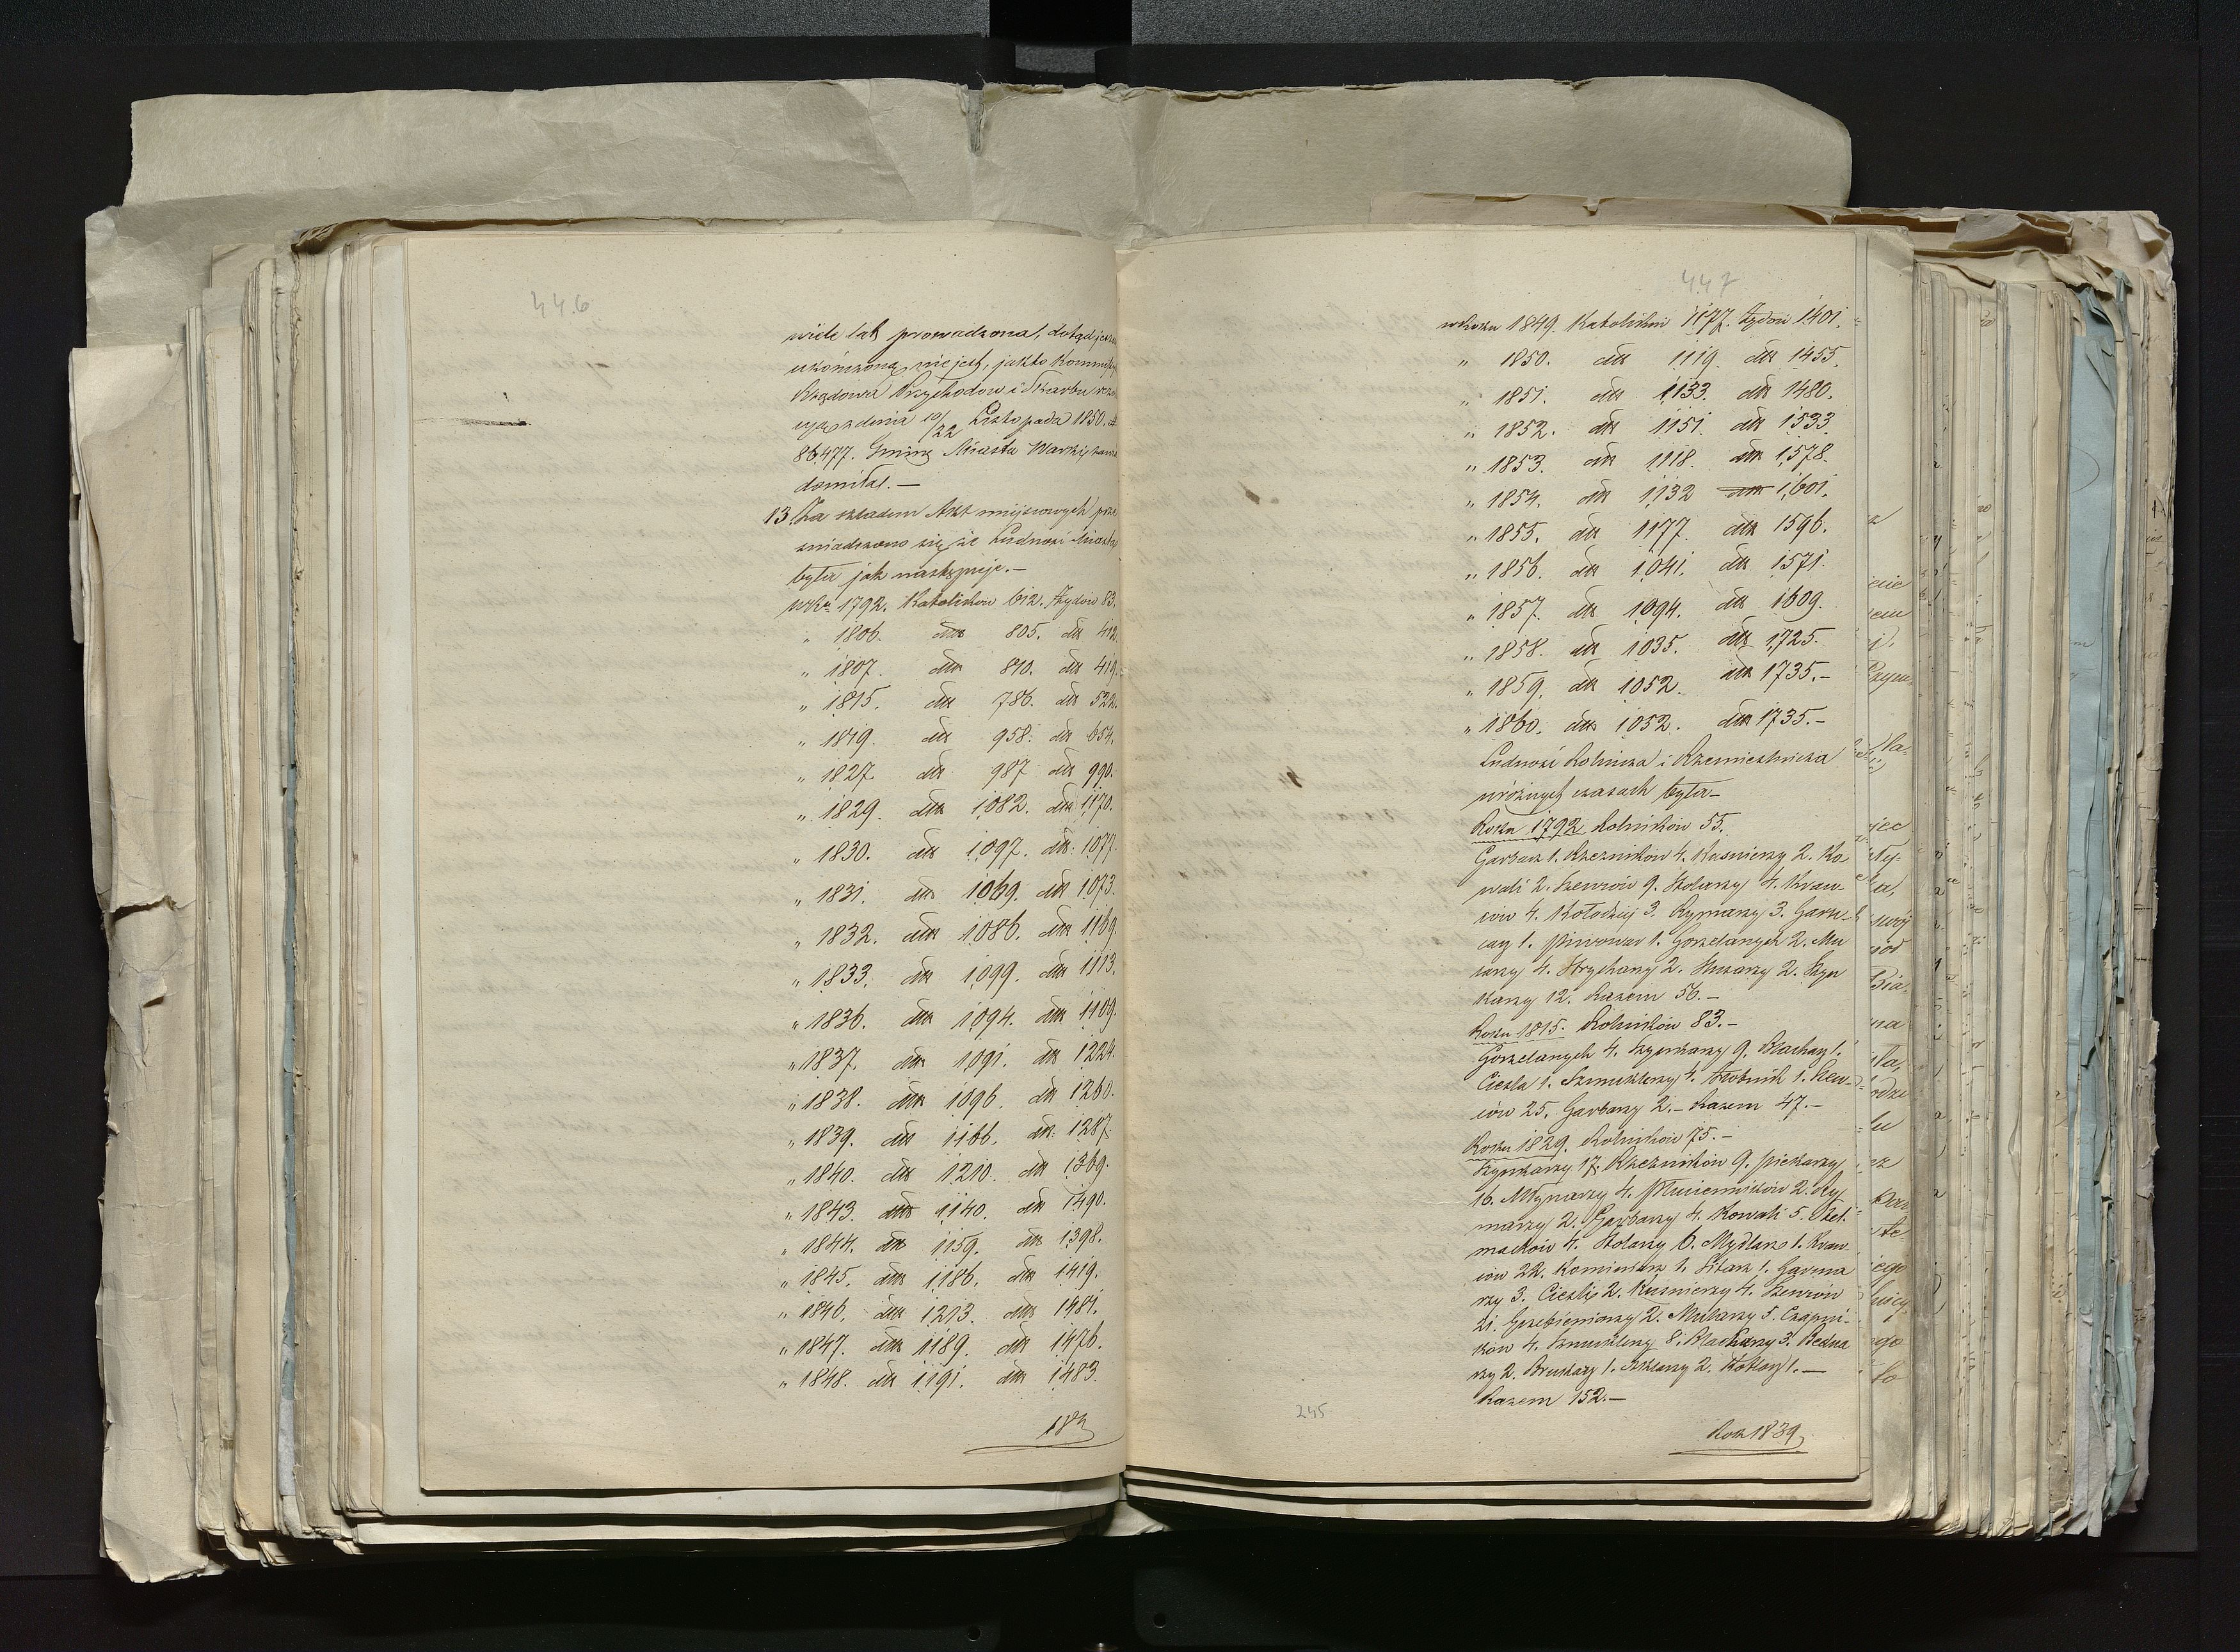 446
wiele lat prowadzona, dotąd jeszcze
ukończoną nie jest, jak to Kommissya
Rządowa Przychodów i Skarbu
z dnia 10/22 Listopada 1850.
86477. Gminę Miasta Warki
domiła. —
13. Za składem Akt miejscowych prze
świadczono się że Ludność Miasta
była jak następuje. —
w rku 1792. Katolików 612. Żydów 83.
„ 1806. dtto 805. dtto 412.
„ 1807. dtto 810. dtto 419.
„ 1815. dtto 786. dtto 522.
„ 1819. dtto 958. dtto 654.
„ 1827. dtto 987 dtto 990.
„ 1829. dtto 1082. dtto 1170.
„ 1830. dtto 1097. dtto 1077.
„ 1831. dtto 1069. dtto 1073.
„ 1832. dtto 1086. dtto 1169.
„ 1833. dtto 1099. dtto 1113.
„ 1836. dtto 1094. dtto 1109.
„ 1837. dtto 1091. dtto 1224.
„ 1838. dtto 1096. dtto 1260.
„ 1839. dtto 1166. dtto 1287.
„ 1840. dtto 1210. dtto 1369.
„ 1843. dtto 1140. dtto 1490.
„ 1844. dtto 1159. dtto 1398.
„ 1845. dtto 1186. dtto 1419.
„ 1846. dtto 1213. dtto 1481.
„ 1847. dtto 1189. dtto 1476.
„ 1848. dtto 1191. dtto 1483.
447
w Roku 1849. Katolików 1177. Żydów 1401.
„ 1850. dtto 1119. dtto 1455.
„ 1851. dtto 1133. dtto 1480.
„ 1852. dtto 1151. dtto 1533.
„ 1853. dtto 1118. dtto 1578.
„ 1854. dtto 1132 dtto 1601.
„ 1855. dtto 1177. dtto 1596.
„ 1856. dtto 1041. dtto 1571.
„ 1857. dtto 1094. dtto 1609.
„ 1858. dtto 1035. dtto 1725.
„ 1859. dtto 1052. dtto 1735. —
„ 1860. dtto 1052. dtto 1735. —
Ludność Rolnicza i Rzemieślnicza
w różnych czasach była —
Roku 1792 Rolników 55.
Garbarz 1. Rzezników 4. Kusnierzy 2. Ko
wali 2. Szewców 9. Stolarzy 4. Kraw-
ców 4. Kołodziej 3. Rymarzy 3. Garn-
carz 1. piwowar 1. Gorzelanych 2. Mu
larzy 4. Strycharzy 2. Slusarzy 2. Szyn
karzy 12. Razem 56. —
Roku 1815. Rolników 83. —
Gorzelanych 4. Szynkarzy 9. Blacharz 1.
Ciesla 1. Szmuklerzy 4. Złotnik 1. Szew-
ców 25. Garbarzy 2. — Razem 47. —
Roku 1829. Rolników 75. —
Szynkarzy 17. Rzezników 9. piekarzy
16. Młynarzy 4. płuciennikow 2. Ry
marzy 2. Garbarzy 4. Kowali 5. Stel-
machów 4. Stolarzy 6. Mydlarz 1. Kraw-
ców 22. Kominiarz 1. Sitarz 1. Garnca
rzy 3. Ciesli 2. Kusnierzy 4. Szewców
21. Grzebieniarzy 2. Mularzy 5. Czapni-
ków 4. Szmuklerzy 8. Blacharzy 3. Bedna
rzy 2. Brukarz 1. Szklarzy 2. Kotlarz 1. —
Razem 152. —
245
Rok 1839